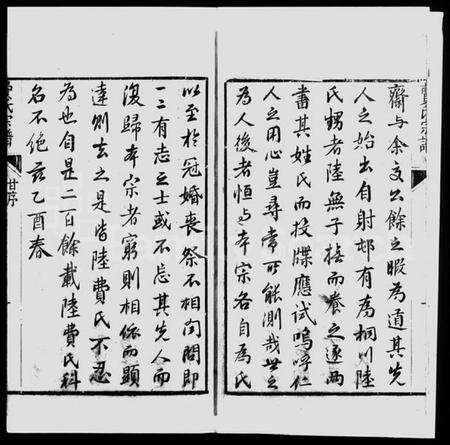 齋与余文公餘之暇為道其先
人之始出自射邨有為桐川陸
氏甥者陸無子撫而養之遂両
書其姓氏而投牒應試嗚呼仁
人之用心豈尋常所能測哉世之
為人後者恒与本宗各自為氏
以至於冠婚喪祭不相聞問即
一二有志之士或不忘其先人而
復歸本宗者窮則相依而顯
達則去之是皆陸費氏不忍
為也自是二百餘載陸費氏科
名不絕茲乙酉春
氏宗譜
甘序